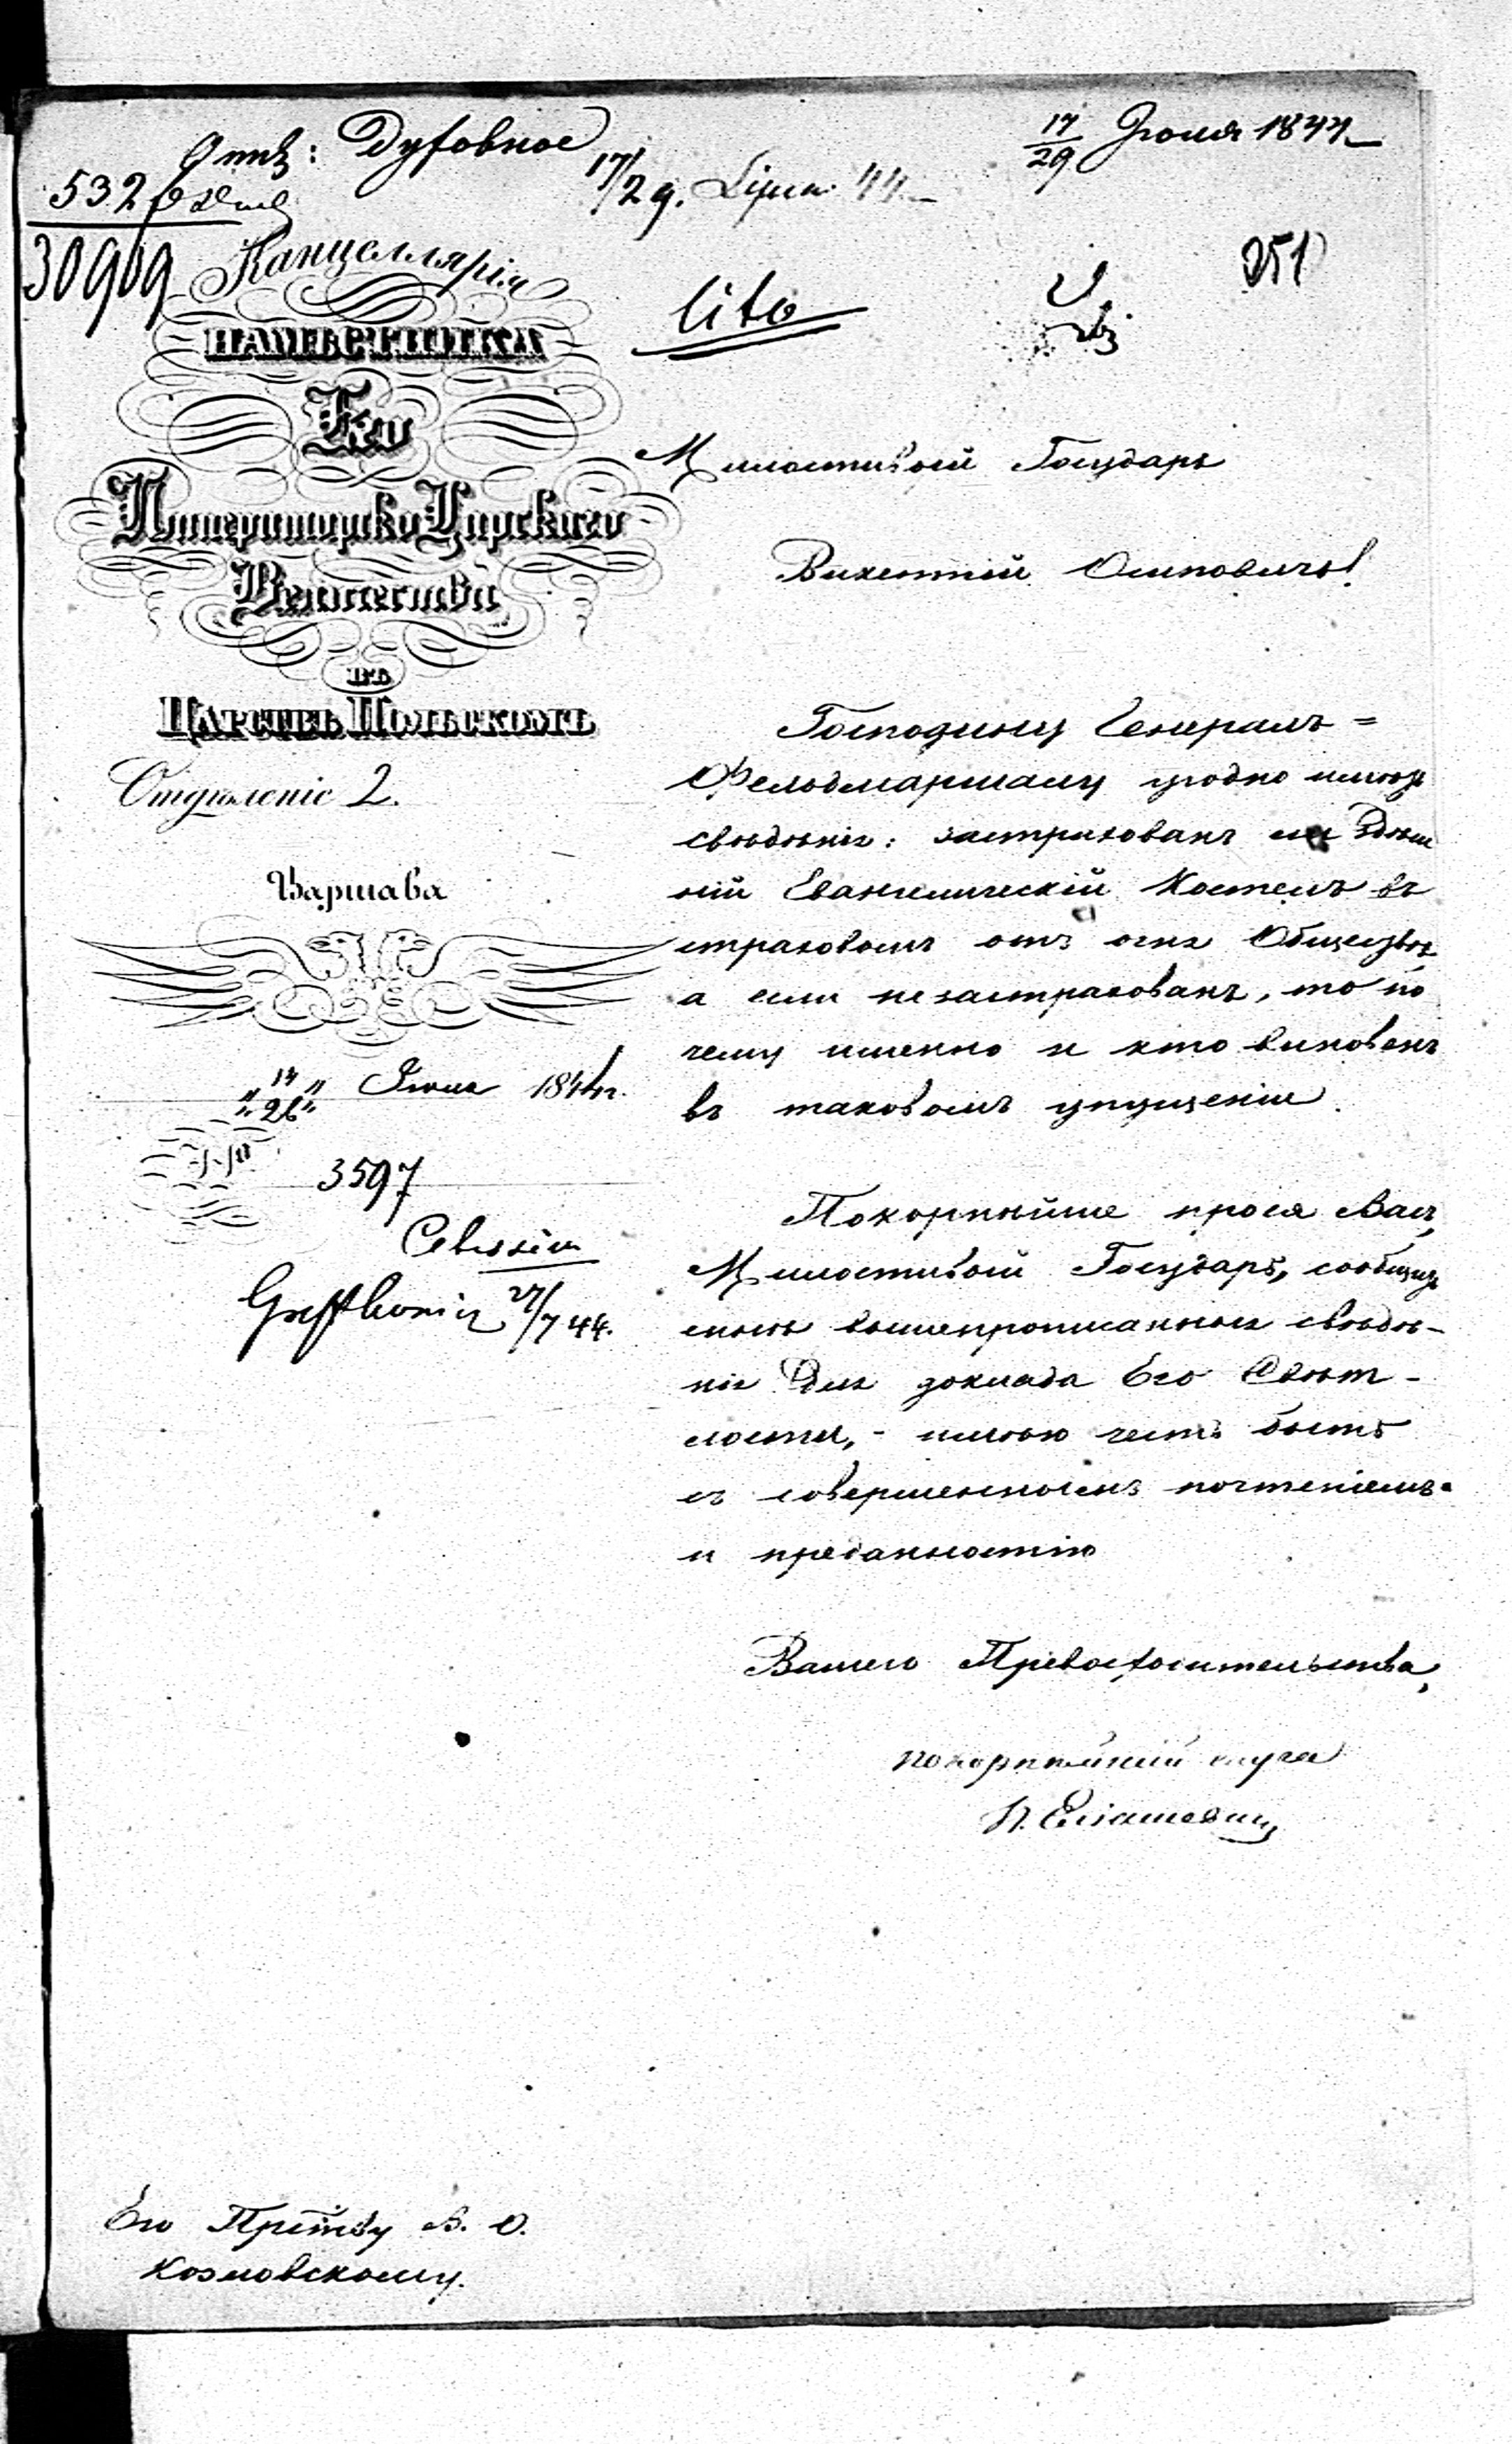 Духовное
17/29 Іюля 1844
532
17/29. Lipca 44
30909
251
lito
Канцеллярія
НАМѢСТНИКА
Его
Императорско Царскаго
Величества
въ
Царствѣ Польскомъ
Отдѣленіе 2.
Варшава
"14/26" Іюля 1844 г.
№ 3597
27/7 44.
Милостивый Государь
Викентій Осиповичъ!
Господину Генералъ=
Фельдмаршалу угодно имѣть
свѣдѣніе: застрахованъ ли Здѣш
ній Евангелическій Костелъ въ
страховомъ отъ огня Обществѣ,
а если не застрахованъ, то по
чему именно и кто виновенъ
въ таковомъ упущеніи.
Покорнѣйше прося Васъ,
Милостивый Государь, сообщить
мнѣ вышепрописанныя свѣдѣ-
нія Для доклада Его Свѣт-
лости, - имѣю честь быть
съ совершеннымъ почтеніемъ
и преданностію
Вашего Превосходительства,
покорнѣйшій слуга
Его Прев-тву В. О.
Козловскому.